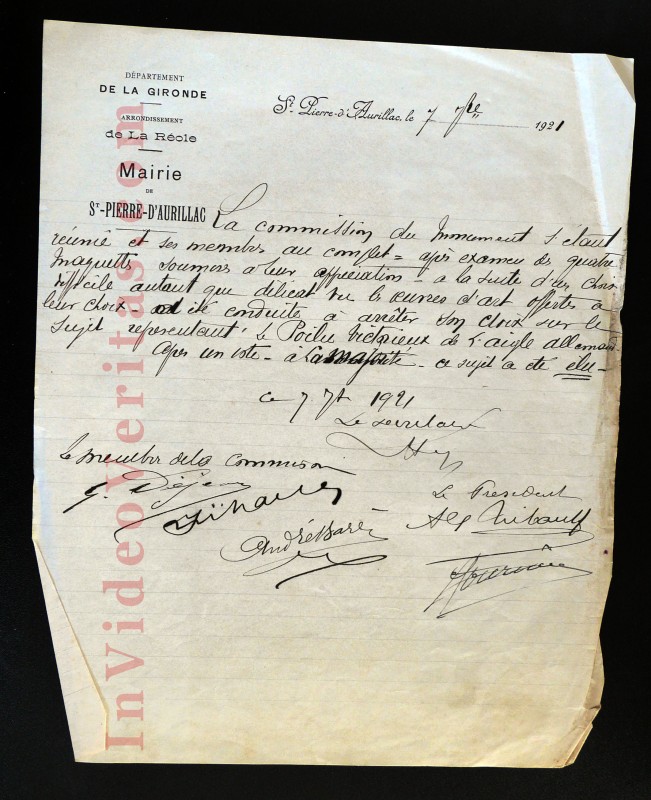 DÉPARTEMENT
DE LA GIRONDE
ARRONDISSEMENT
de La Réole
Mairie
DE
ST-PIERRE-D'AURILLAC
St-Pierre-d'Aurillac, le 7 1921
La commission du Monument s'etant
réunie et ses membres au complet = après examen de quatre
maquettes soumises a leur appréciation - a la suite d'un choix
difficile autant que délicat vu les œuvres d'art offertes a
leur choix - a été conduite à arrêter son choix sur le
sujet représentant Le Poilu victorieux de l'aigle allemand.
Apres un vote - a la majorité - ce sujet a été élu -
ce 7 7bre 1921
Le secrétaire
le membres de la commission
G. Dejean
Le President
Alf Thibault
André Baré
InVideoVeritas.com